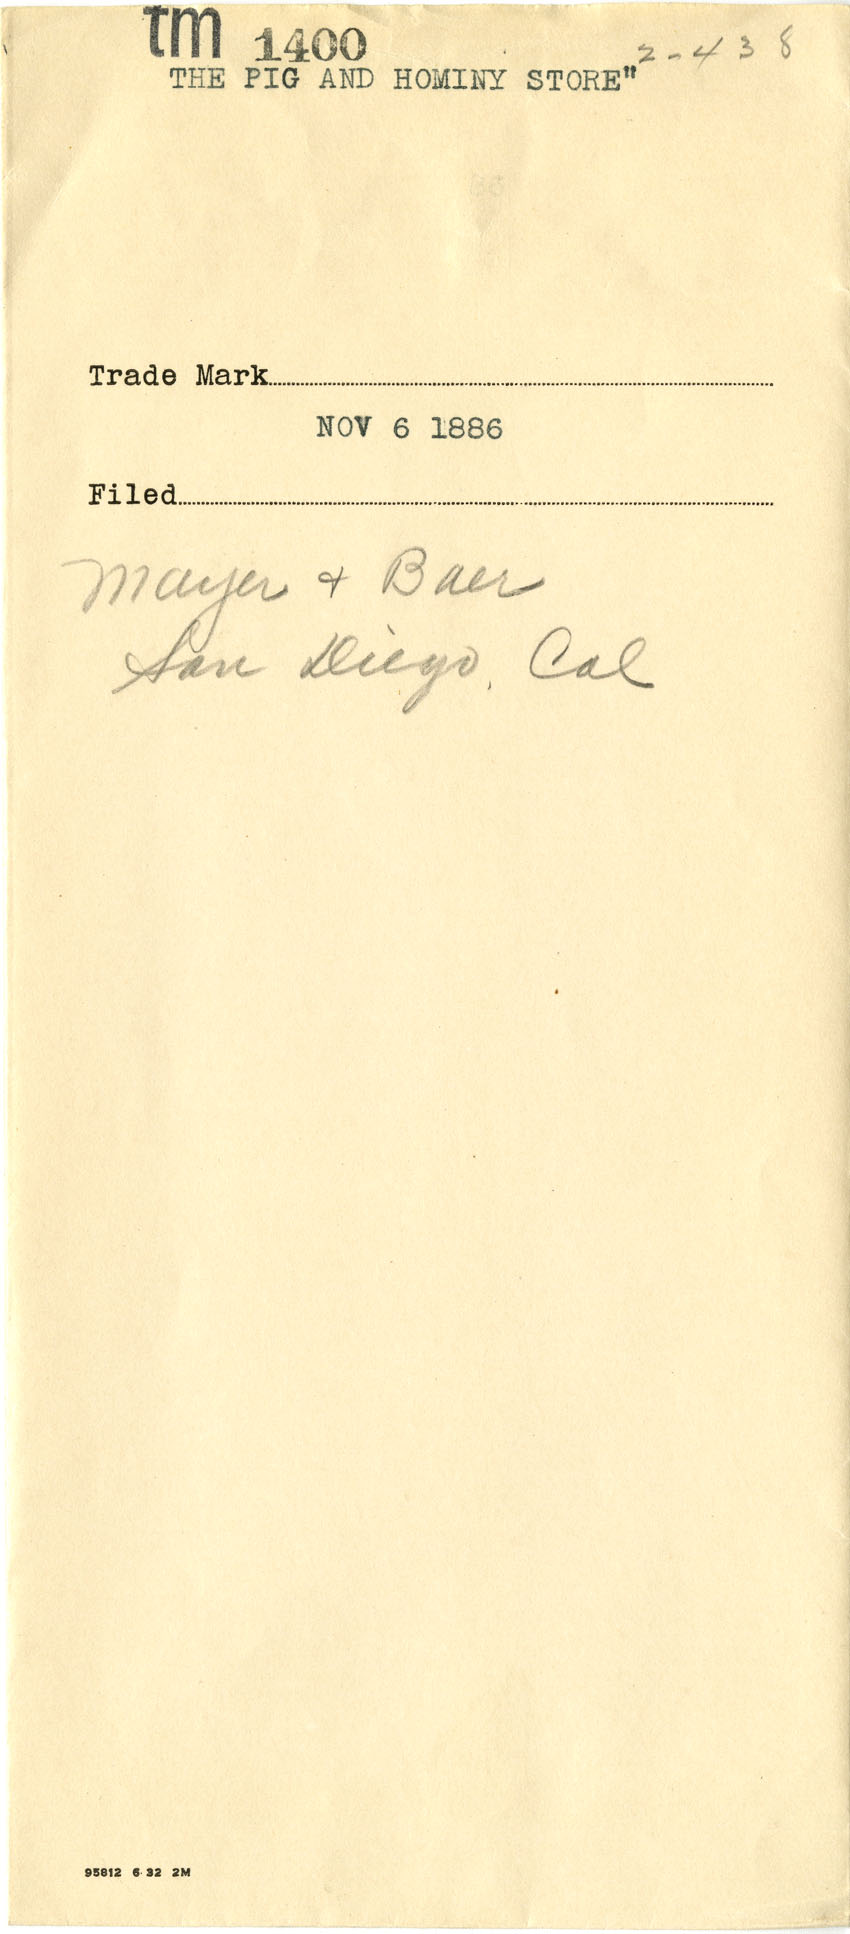 tm 1400
2-438
THE PIG AND HOMINY STORE"
Trade Mark
NOV 6 1886
Filed
Mayer + Baer
San Diego, Cal
95812 6-32 2M